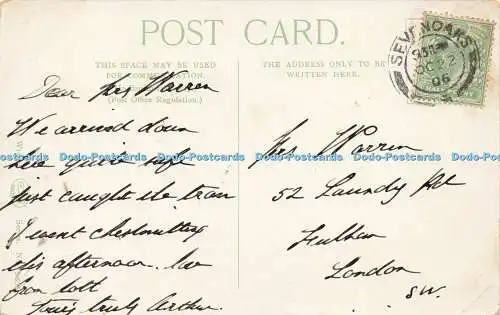 POST CARD.
THIS SPACE MAY BE USED
FOR COMMUNICATION
(Post Office Regulation.)
THE ADDRESS ONLY TO BE
WRITTEN HERE.
SEVENOAKS
OC 22
06
Dear Mrs Warren
We arrived down
here quite safe
just caught the tram
I went chestnutting
this afternoon. love
from lott
Yours truly Arthur.
Mrs Warren
52 Laundy Rd
Fulham
London
SW.
Dodo-Postcards Dodo-Postcards Dodo-Postcards Dodo-Postcards Dodo-Postcards